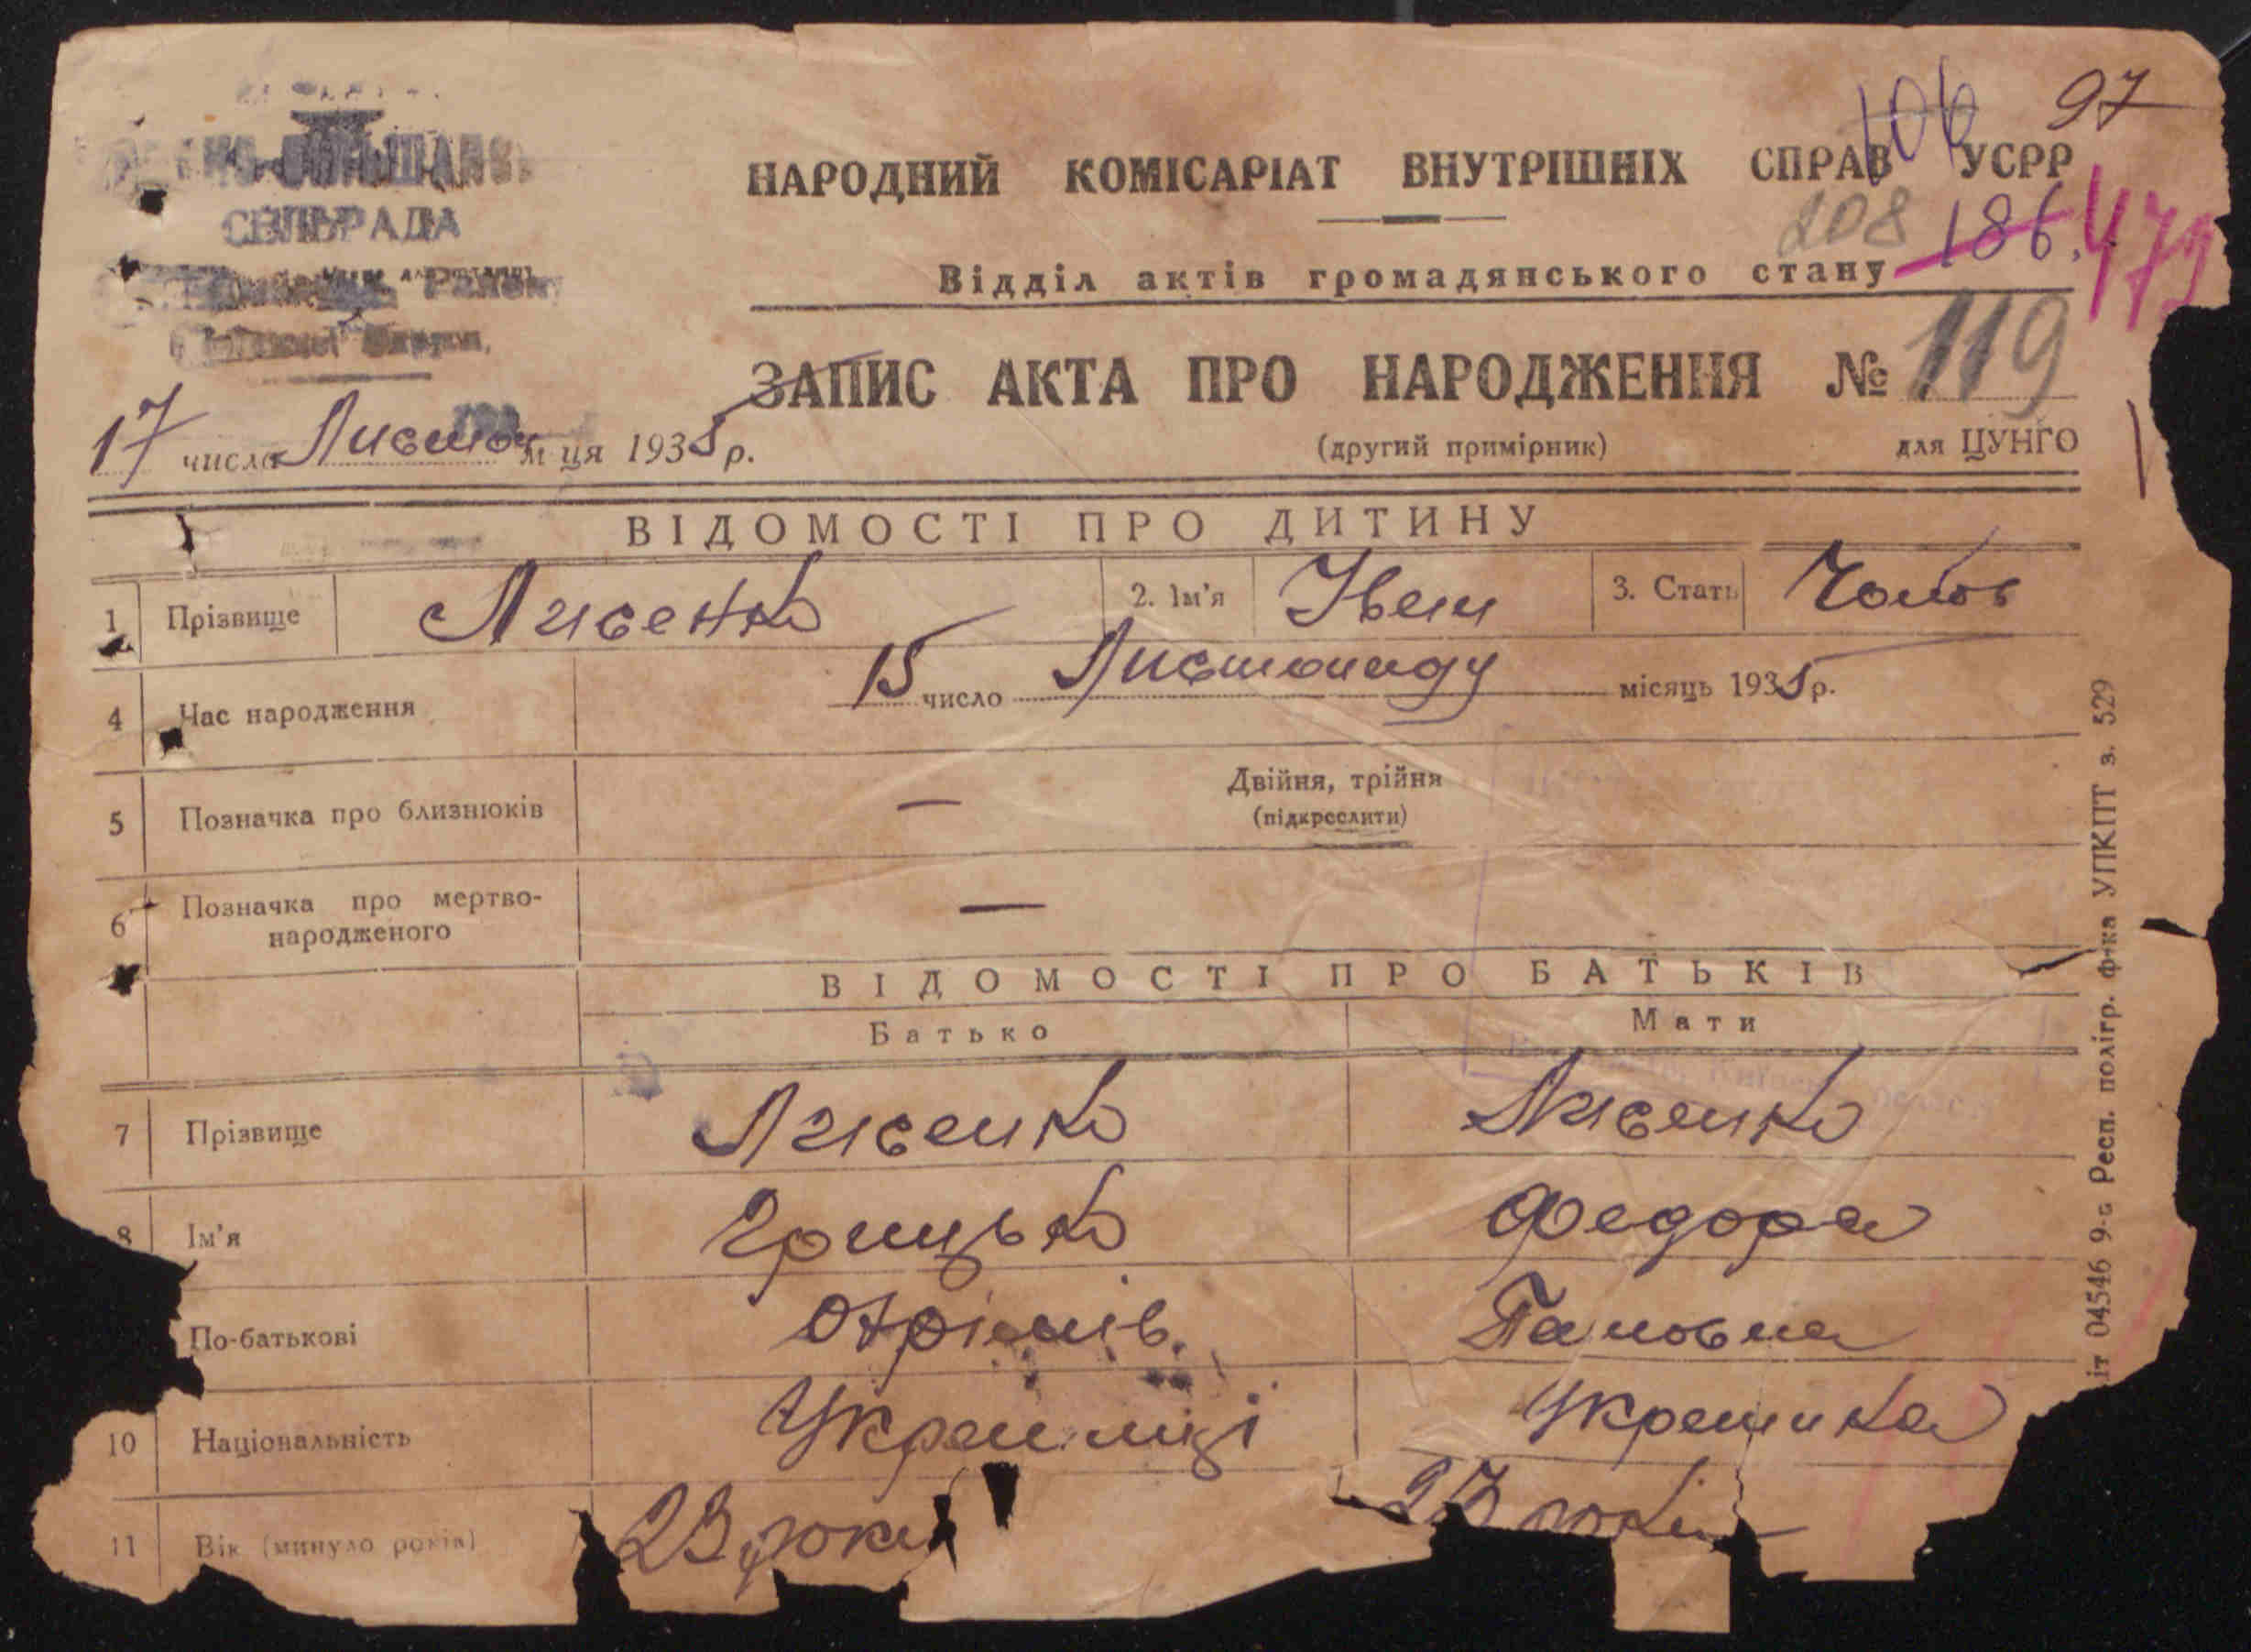 97
106
НАРОДНИЙ КОМІСАРІАТ ВНУТРІШНІХ СПРАВ УСРР
СЕЛЬРАДА
208 186. 473
Відділ актів громадянського стану
ЗАПИС АКТА ПРО НАРОДЖЕННЯ № 119
17 число Листоп м ця 1935 р.
(другий примірник) для ЦУНГО
ВІДОМОСТІ ПРО ДИТИНУ
1 Прізвище Лисенко 2. Ім'я Іван 3. Стать Чолов
4 Час народження 15 число Листопаду місяць 1935 р.
5 Позначка про близнюків — Двійня, трійня
(підкреслити)
6 Позначка про мертво-
народженого —
ВІДОМОСТІ ПРО БАТЬКІВ
Батько Мати
7 Прізвище Лисенко Лисенко
8 Ім'я Грицько Федора
По-батькові Пановна
10 Національність Українці Українка
11 Вік (минуло років) 23 роки 23 роки
іт 04546 9-с Респ. полігр. ф-ка УПКПТ з. 529